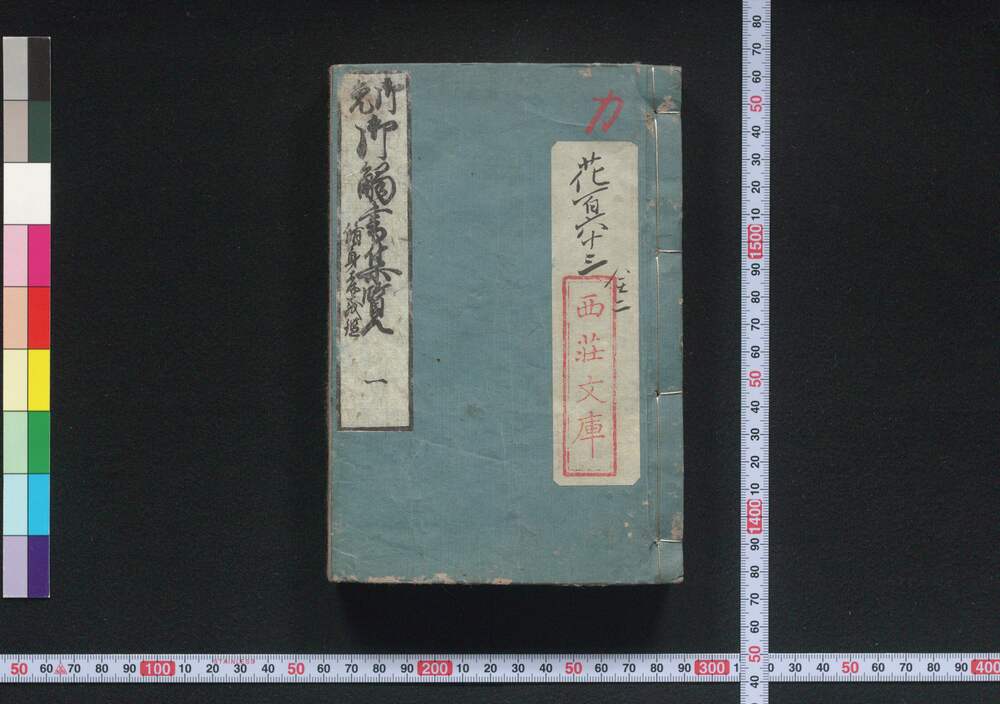 力
花百六十三
仕二
西荘文庫
御免
御觸書集覧
脩身孝義鑑
一
80
70
60
50
40
30
20
10
1500
90
80
70
60
50
40
30
20
10
1400
90
80
70
60
50
40
50 60 70 80 90 100 10 20 30 40 50 60 70 80 90 200 10 20 30 40 50 60 70 80 90 300 1 20 30 40 50 60 70 80 90 400